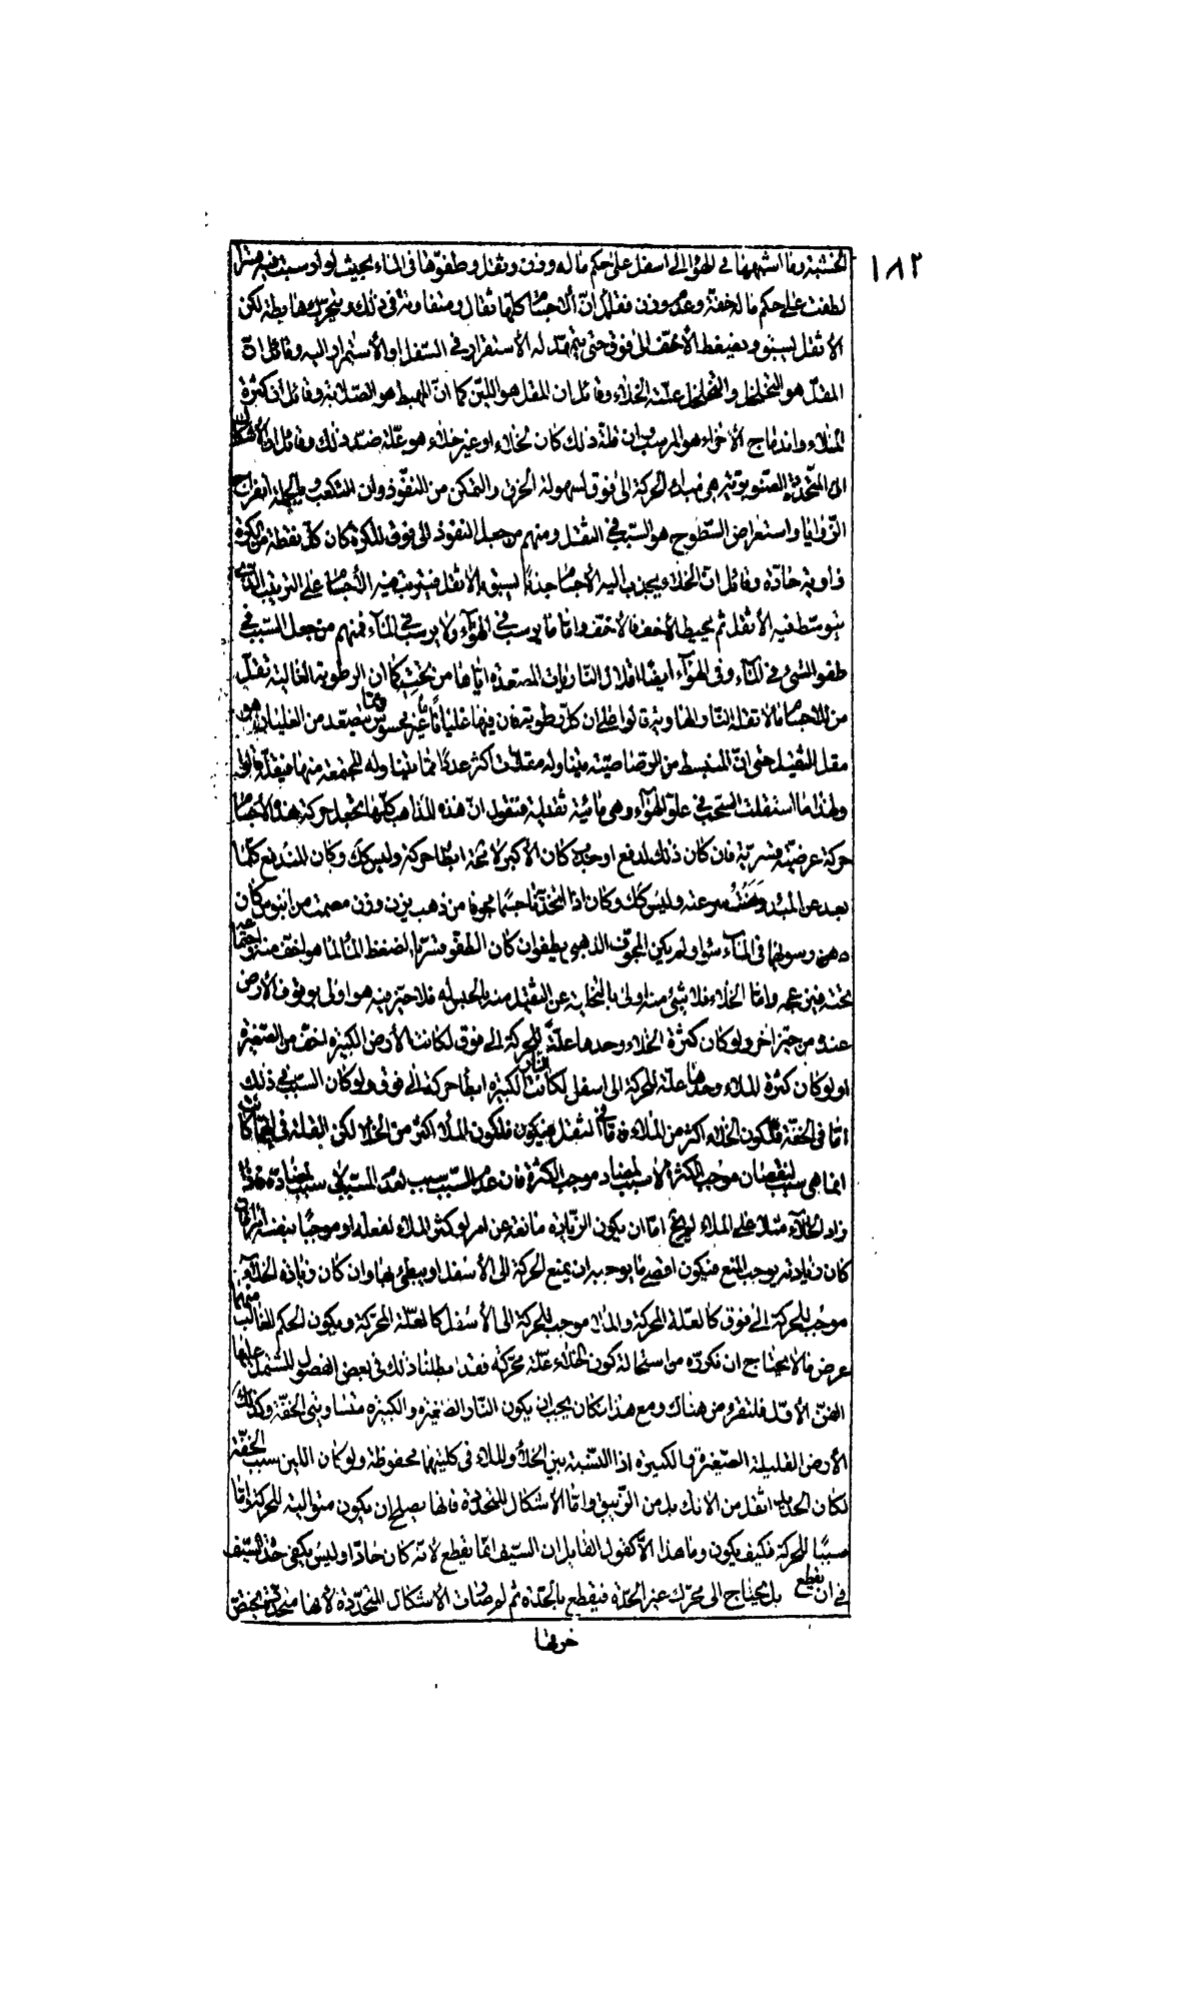 ١٨٢
الخشبة وما اشبهها فى الهواء الى اسفل على حكم ما له وزن وثقل وطفوّها فى الماء بحيث لو ارسبت فيه قسرا
لطفت على حكم ما له خفّة وعدم وزن فقائل ان الاجسام كلها ثقال ومتفاوتة فى ذلك ويتحرك هابطة لكن
الاثقل يسبق ويضغط الأخف الى فوق حتى يتمهّد له الاستقرار فى السّفل او الاستمرار اليه وقائل انّ
المقلّ هو التخلخل والتخلخل علّته الخلاء وقائل ان المقل هو اللين كما انّ المهبط هو الصّلابة وقائل ان كثرة
الملاء واندماج الأجزاء هو المرسب وان قلة ذلك كان لخلاء او غير خلاء هو علّة ضدّ ذلك وقائل ان الأشكال
المتحدّدة الصنوبرية هى مبدأ الحركة الى فوق لسهولة الخرق والتمكن من النفوذ وان التكعب وبالجملة انفراج
الزّوايا واستعراض السّطوح هو السّبب فى الثقل ومنهم من جعل النفوذ الى فوق للكرة كان كلّ نقطة من الكرة
زاوية حادّة وقائل انّ الخلاء يجذب اليه الأجسام جذباً يسبق الاثقل فيترتب فيه الأجسام على الترتيب الذى
يتوسّط فيه الأثقل ثم يحيط الأخف فالأخف وامّا ما يرسب فى الهوآء ولا يرسب فى المآء فمنهم من جعل السّبب فى
طفو الشىء فى المآء وفى الهوآء ايضًا اقلال الناريات المصعدة اياها من تحت كما ان الرطوبة الغالية تقلّ
من الاجسام ما لا تقله التى لها وتيرة قالوا على ان كلّ رطوبة فان فيها غلياناً ما غير محسوس وما يتصعّد من الغليان هو
مقل الثقيل حتى انّ المنبسط من الرّصاصيّة يتناوله مقلات اكثر عددًا مما يتناوله المجتمعة منها فيقله قالوا
ولهذا ما استقلت السّحب فى علوّ الهوآء وهى مائية ثقيلة فنقول انّ هذه المذاهب كلّها يجعل حركة هذه الأجسام
حركة عرضيّة قسريّة فان كان ذلك لدفع او جذب كان الأكبر لا محة ابطأ حركة وليس كك وكان المندفع كلّما
بعد عن المبدء وهنت سرعته وليس كك وكان اذا اتخذنا جسمًا مجوفا من ذهب يزن وزن مصمت من ابنوس كان
رسوبهما فى المآء سواء ولم يكن المجوّف الذهبى يطفو ان كان الطفو قسريّا لضغط الماء لما هو اخف منه واجتماعه
تحته فيزعجه وامّا الخلاء فلا شىء منه اولى بالتخلية عن الثقيل منه بالحبس له فلا حيّز منه هو اولى بوقوف الأرض
عنده من حيّز آخر ولو كان كثرة الخلاء وحدها علّة للحركة الى فوق لكانت الأرض الكبيرة اخفّ من الصّغيرة
او لو كان كثرة الملاء وحدها علّة للحركة الى اسفل لكانت النار الكبيرة ابطأ حركة الى فوق ولو كان السّبب فى ذلك
امّا فى الخفّة فلكون الخلاء اكثر من الملاء وامّا فى الثقل فيكون فلكون الملاء اكثر من الخلاء لكن القلة فى ايّهما كانت
انما هى سبب لنقصان موجب الكثرة لا سبب لمضاد موجب الكثرة فان عدم السّبب سبب لعدم المسبب لا سبب لمضادّه فاذا
زاد الخلاء مثلا على الملاء لم يخل امّا ان يكون الزّيادة مانعة عن امر لو كثر الملاء لفعله او موجبًا بنفسه امرا فان
كان زيادته يوجب المنع فيكون اقصى ما يوجبه ان يمنع الحركة الى الأسفل او يبطئ بها وان كان زيادة الخلآء
موجب للحركة الى فوق كالعلّة المحركة والملاء موجب للحركة الى الأسفل كالعلّة المحرّكة ويكون الحكم للغالب منهما
عرض ما لا يحتاج ان نكرّره من استحالة كون الخلاء علّة محركة فقد ابطلنا ذلك فى بعض الفصول المشتمل عليها
الفنّ الأوّل فلتقرء من هناك ومع هذا فكان يجب ان يكون النّار الصّغيرة والكبيرة متساويتى الخفّة وكذلك
الأرض القليلة الصّغيرة والكبيرة اذا النّسبة بين الخلأ والملاء فى كليتهما محفوظة ولو كان اللين سبب الخفّة
لكان الحديد اثقل من الانك بل من الزّيبق وامّا الأشكال المتحدّدة فانها يصلح ان يكون متواليه للحركة وامّا
سببًا للحركة فكيف يكون وما هذا الّا كقول القائل ان السيف انما يقطع لانه كان حادّا وليس يكفى حدّة السّيف
فى ان يقطع بل يحتاج الى محرّك غير الحدّة فيقطع بالحدّة ثم لو صارت الأشكال المتحدّدة لأنها متحدّدة يختصّ
خرقها